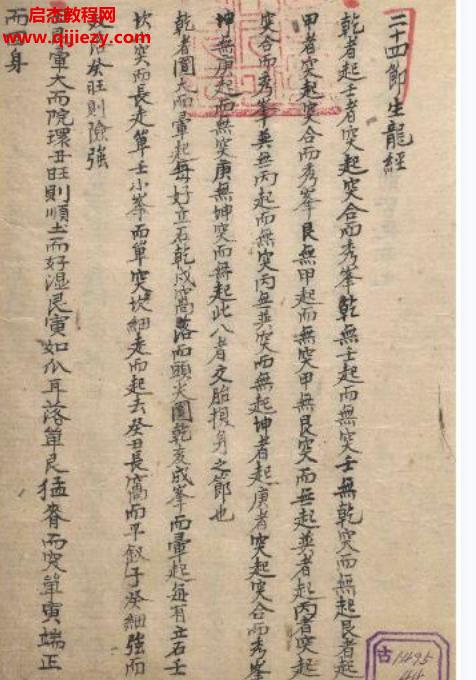 启杰教育网
www.qijiezy.cn
二十四節生龍經
乾者起壬者突起突合而秀峯乾無壬起而無突壬無乾突而無起艮者起
甲者突起突合而秀峯艮無甲起而無突甲無艮突而無起巽者起丙者突起
突合而秀峯巽無丙起而無突丙無巽突而無起坤者起庚者突起突合而秀峯
坤無庚起而無突庚無坤突而無起此八者交胎損身之節也
乾者圓大而暈起每好立石乾戌窩落而頭尖圓乾亥成峯而暈起每有立石壬
坎突而長走單壬小峯而單突坎細走而起去癸丑長窩而平叙子癸細強而
癸旺則險強
暈大而院環丑旺則順土而好湿艮寅如爪耳落單艮猛脊而突單寅端正
而身
古1495